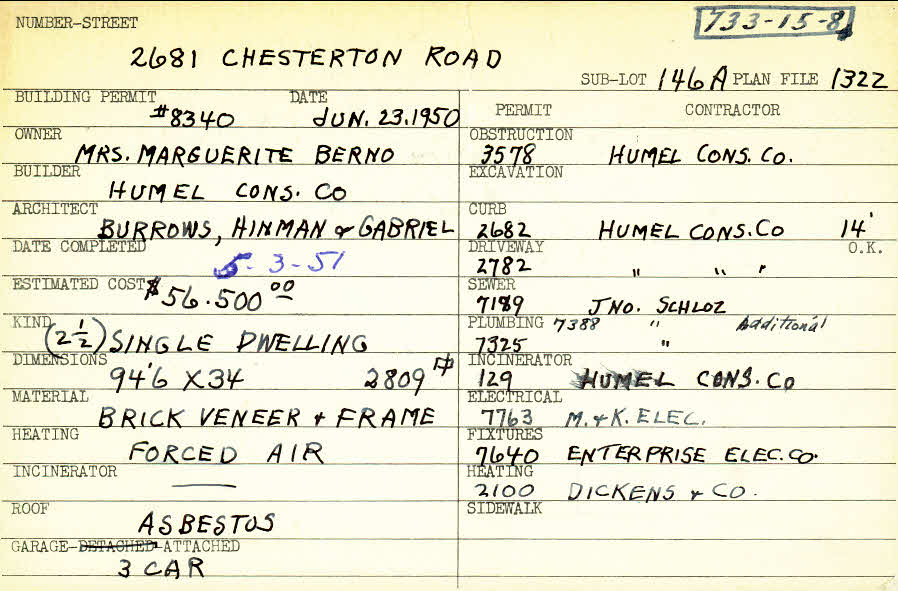 NUMBER-STREET
733-15-8
2681 CHESTERTON ROAD
SUB-LOT 146A PLAN FILE 1322
BUILDING PERMIT DATE
#8340 JUN. 23.1950
OWNER
MRS. MARGUERITE BERNO
BUILDER
HUMEL CONS. CO
ARCHITECT
BURROWS, HINMAN & GABRIEL
DATE COMPLETED
5-3-51
ESTIMATED COST $56.500 00
KIND
(2 1/2) SINGLE DWELLING
DIMENSIONS
94'6 X34 2809
MATERIAL
BRICK VENEER & FRAME
HEATING
FORCED AIR
INCINERATOR
ROOF
ASBESTOS
GARAGE-DETACHED-ATTACHED
3 CAR
PERMIT CONTRACTOR
OBSTRUCTION
3578 HUMEL CONS. CO.
EXCAVATION
CURB
2682 HUMEL CONS. CO 14'
DRIVEWAY O.K.
2782 " " "
SEWER
7189 JNO. SCHLOZ
PLUMBING 7388 " Additional
7325 "
INCINERATOR
129 HUMEL CONS. CO
ELECTRICAL
7763 M. & K. ELEC.
FIXTURES
7640 ENTERPRISE ELEC. CO.
HEATING
2100 DICKENS & CO.
SIDEWALK